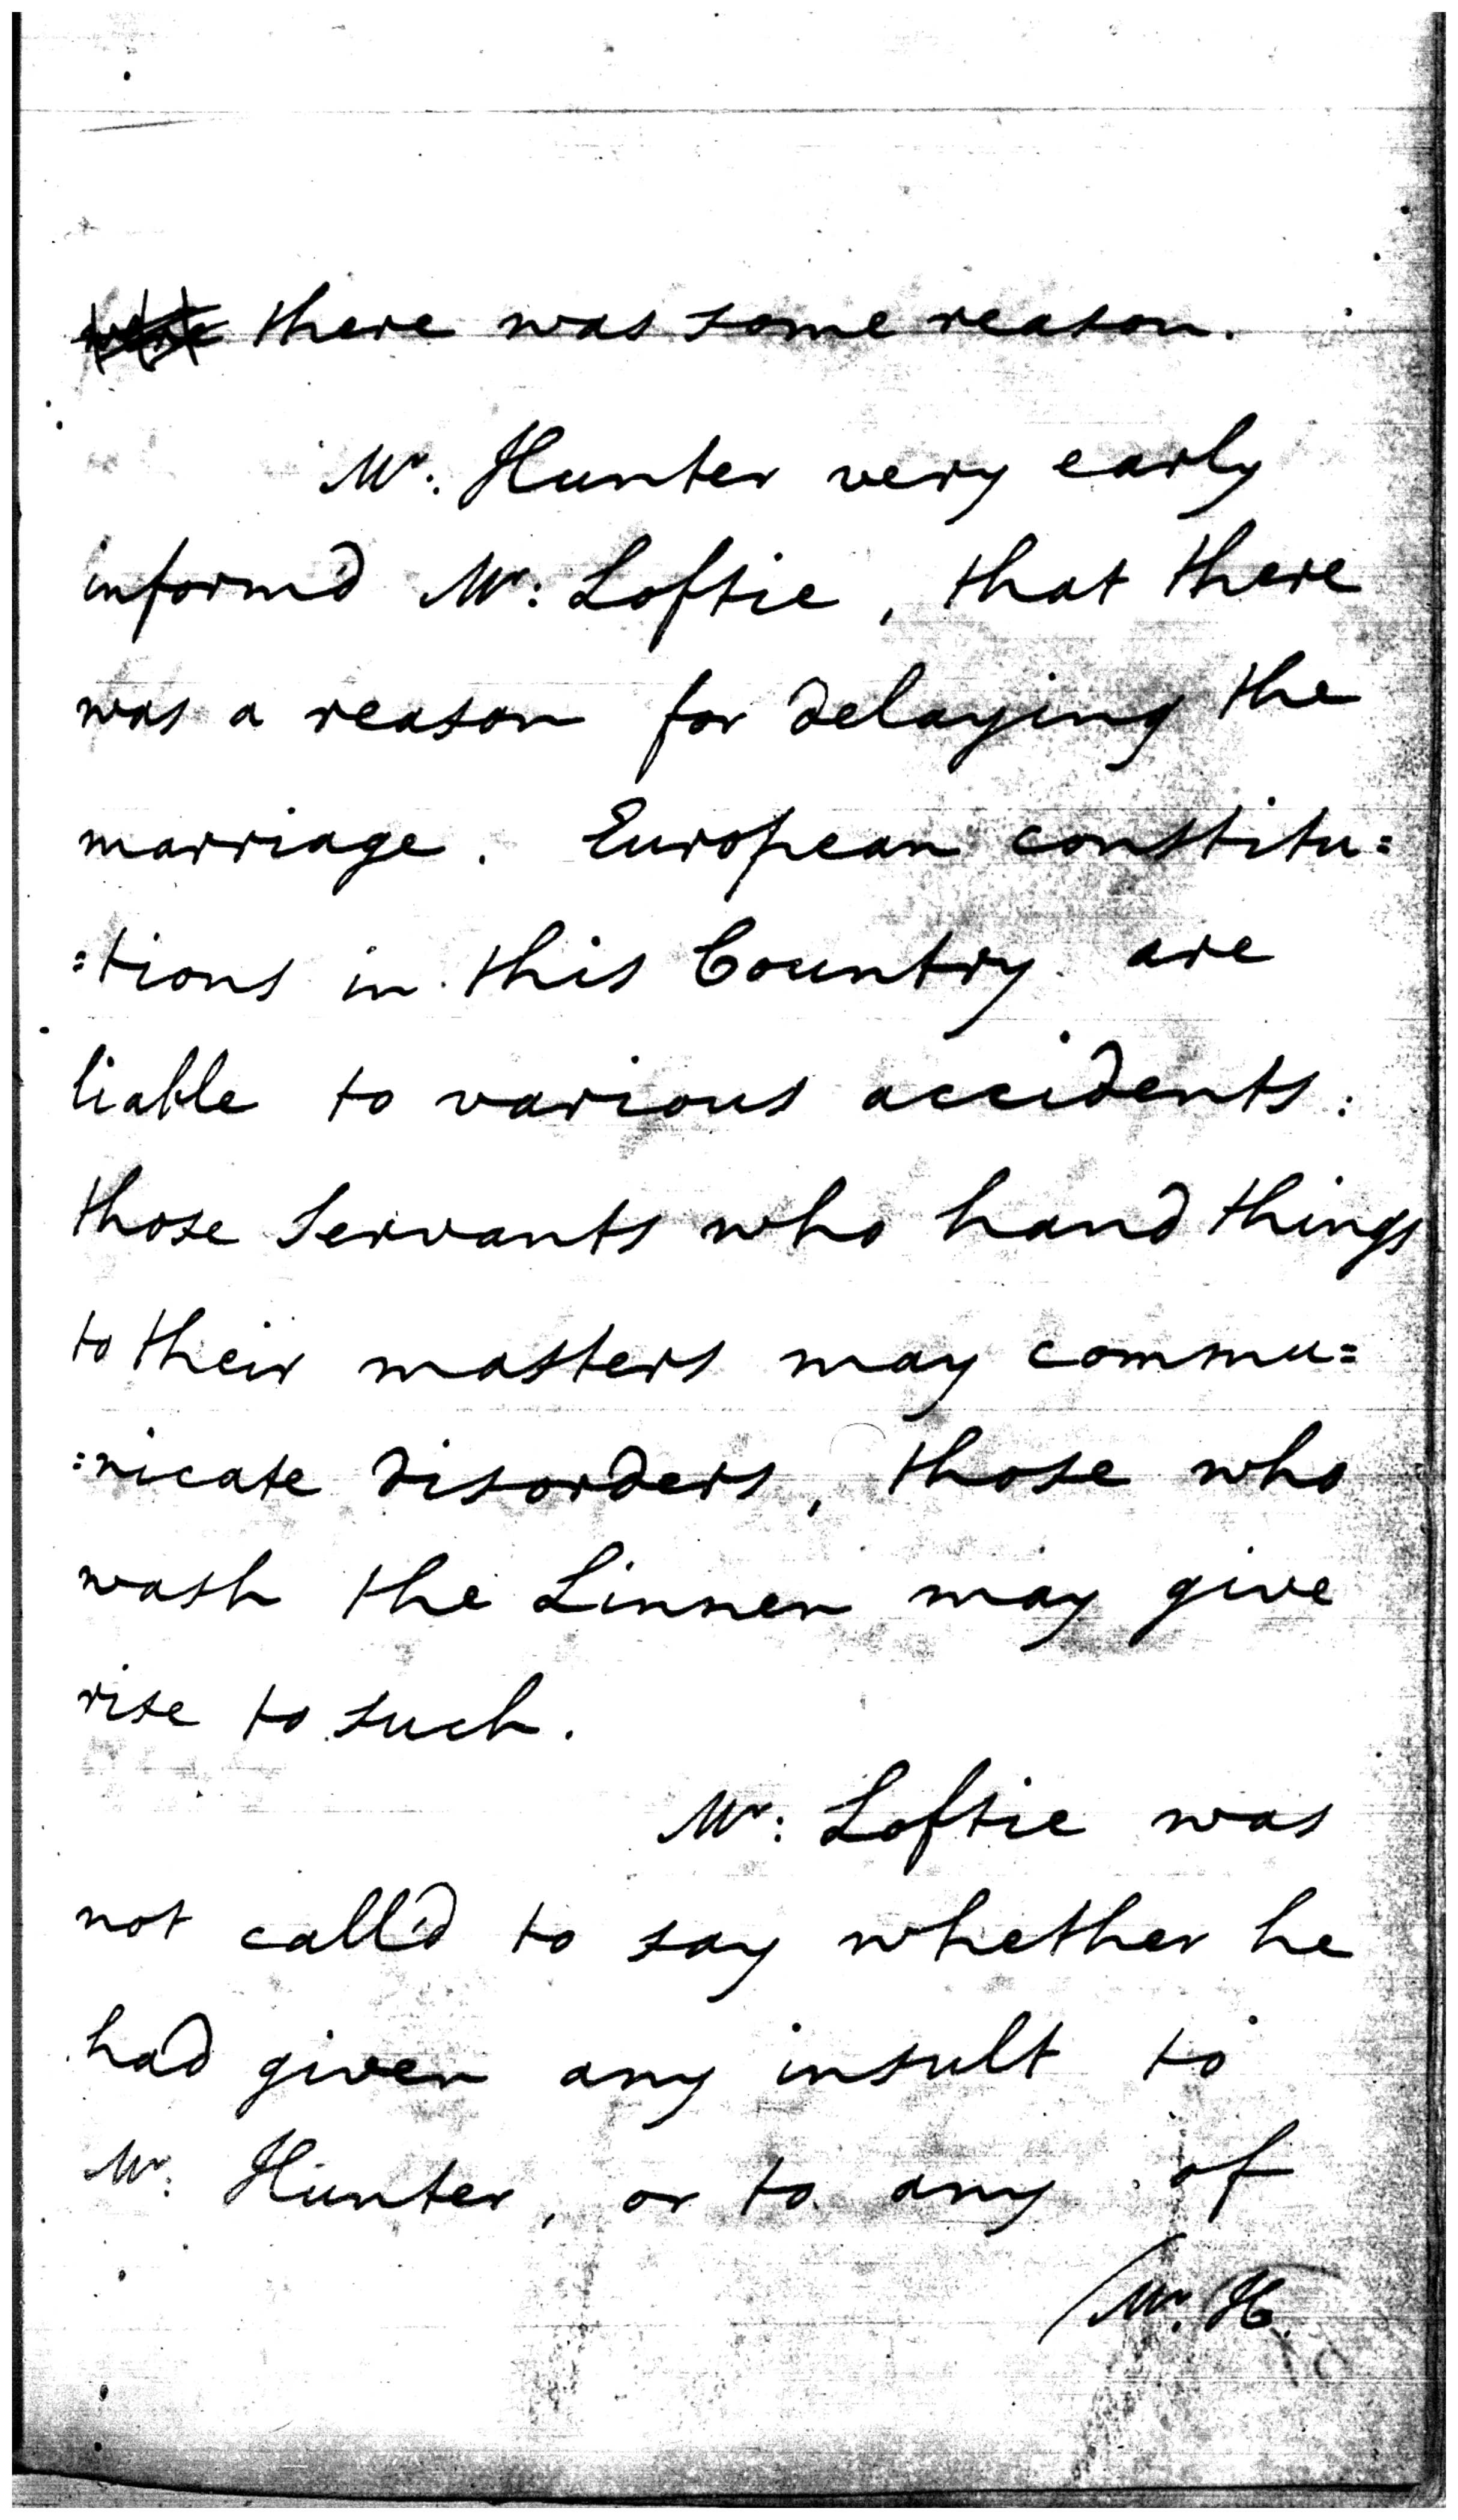 there was some reason.
Mr: Hunter very early
inform'd Mr: Loftie, that there
was a reason for delaying the
marriage. European constitu=
=tions in this Country are
liable to various accidents:
those Servants who hand things
to their masters may commu=
=nicate disorders, those who
wash the Linnen may give
rise to such.
Mr: Loftie was
not call'd to say whether he
had given any insult to
Mr: Hunter, or to any of
/Mr. H.